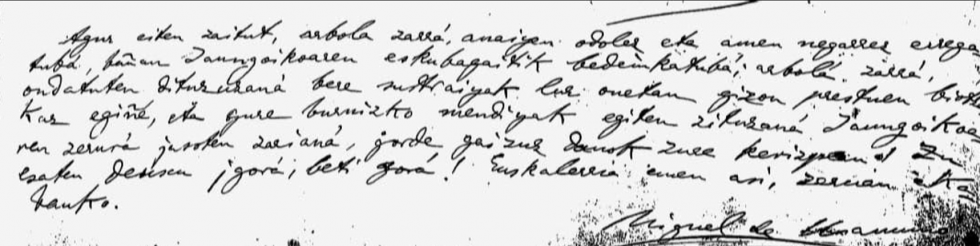 Agur eiten zaitut, arbola zarrá, anaiyen odolez eta amen negarrez errega
tubá, báñan Jaungoikoaren eskubagaitik bedeinkatubá; arbola zarrá,
ondatuten dituzuzaná bere sustraiyak lur onetan gizon prestuen
kar egiñe, eta gure burnizko mendiyak egiten zituzaná. Jaungoikoa
ren zerurá jasoten zarianá, gorde gaizuz danok zure kerizpean!
esaten deusu ¡gorá, beti gorá! Euskalerria emen asi, zercian
danko.
Miguel de Unamuno